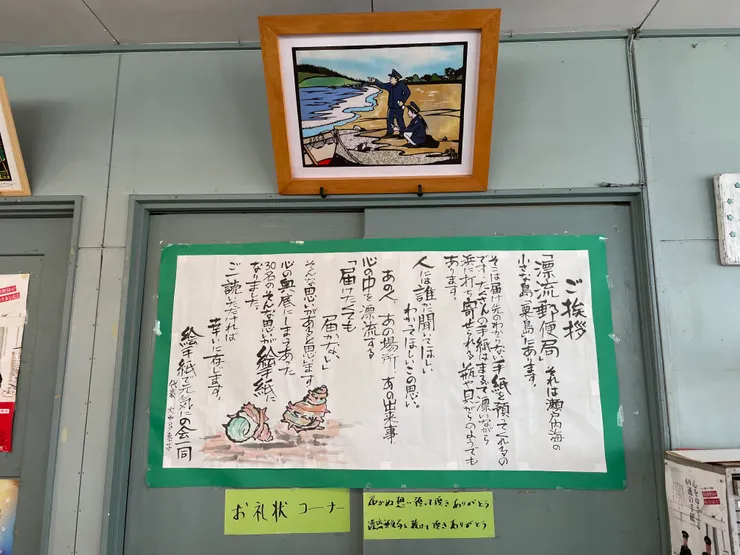 ご挨拶
「漂流郵便局」それは瀬戸内海の
小さな島、粟島にあります。
そこは届け先のわからない手紙を預ってくれるの
です…たくさんの手紙はまるで漂いながら
浜に打ち寄せられる瓶や貝がらのようでも
あります。
人には誰に聞いてほしい
わかってほしいこの思い。
あの人、あの場所！あの出来事
心の中を漂流する
「届けたくても
届かない」
そんな思いがあると思います
心の奥底にしまってあった
30名のそんな思いが絵手紙に
なりました。
ご一読いただければ
幸いに存じます。
絵手紙で元気にの会一同
代表
お礼状コーナー
届かぬ想い預って頂きありがとう
漂流郵便局を続けて頂きありがとう